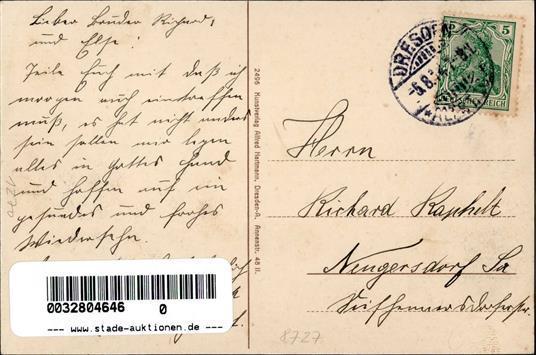 Lieber Bruder Richard,
und Else!
Teile Euch mit daß ich
morgen auch eintreffen
muß, es hat nicht anders
sein sollen wir legen
alles in Gottes Hand
und hoffen auf ein
gesundes und frohes
Wiedersehn.
0032804646 0
--- www.stade-auktionen.de ---
2496 Kunstverlag Alfred Hartmann, Dresden-A. Annenstr. 48 II.
DRESDEN
5
REICH
Herrn
Richard Kaphelt
Neugersdorf Sa
Seifhennersdorferstr.
8727